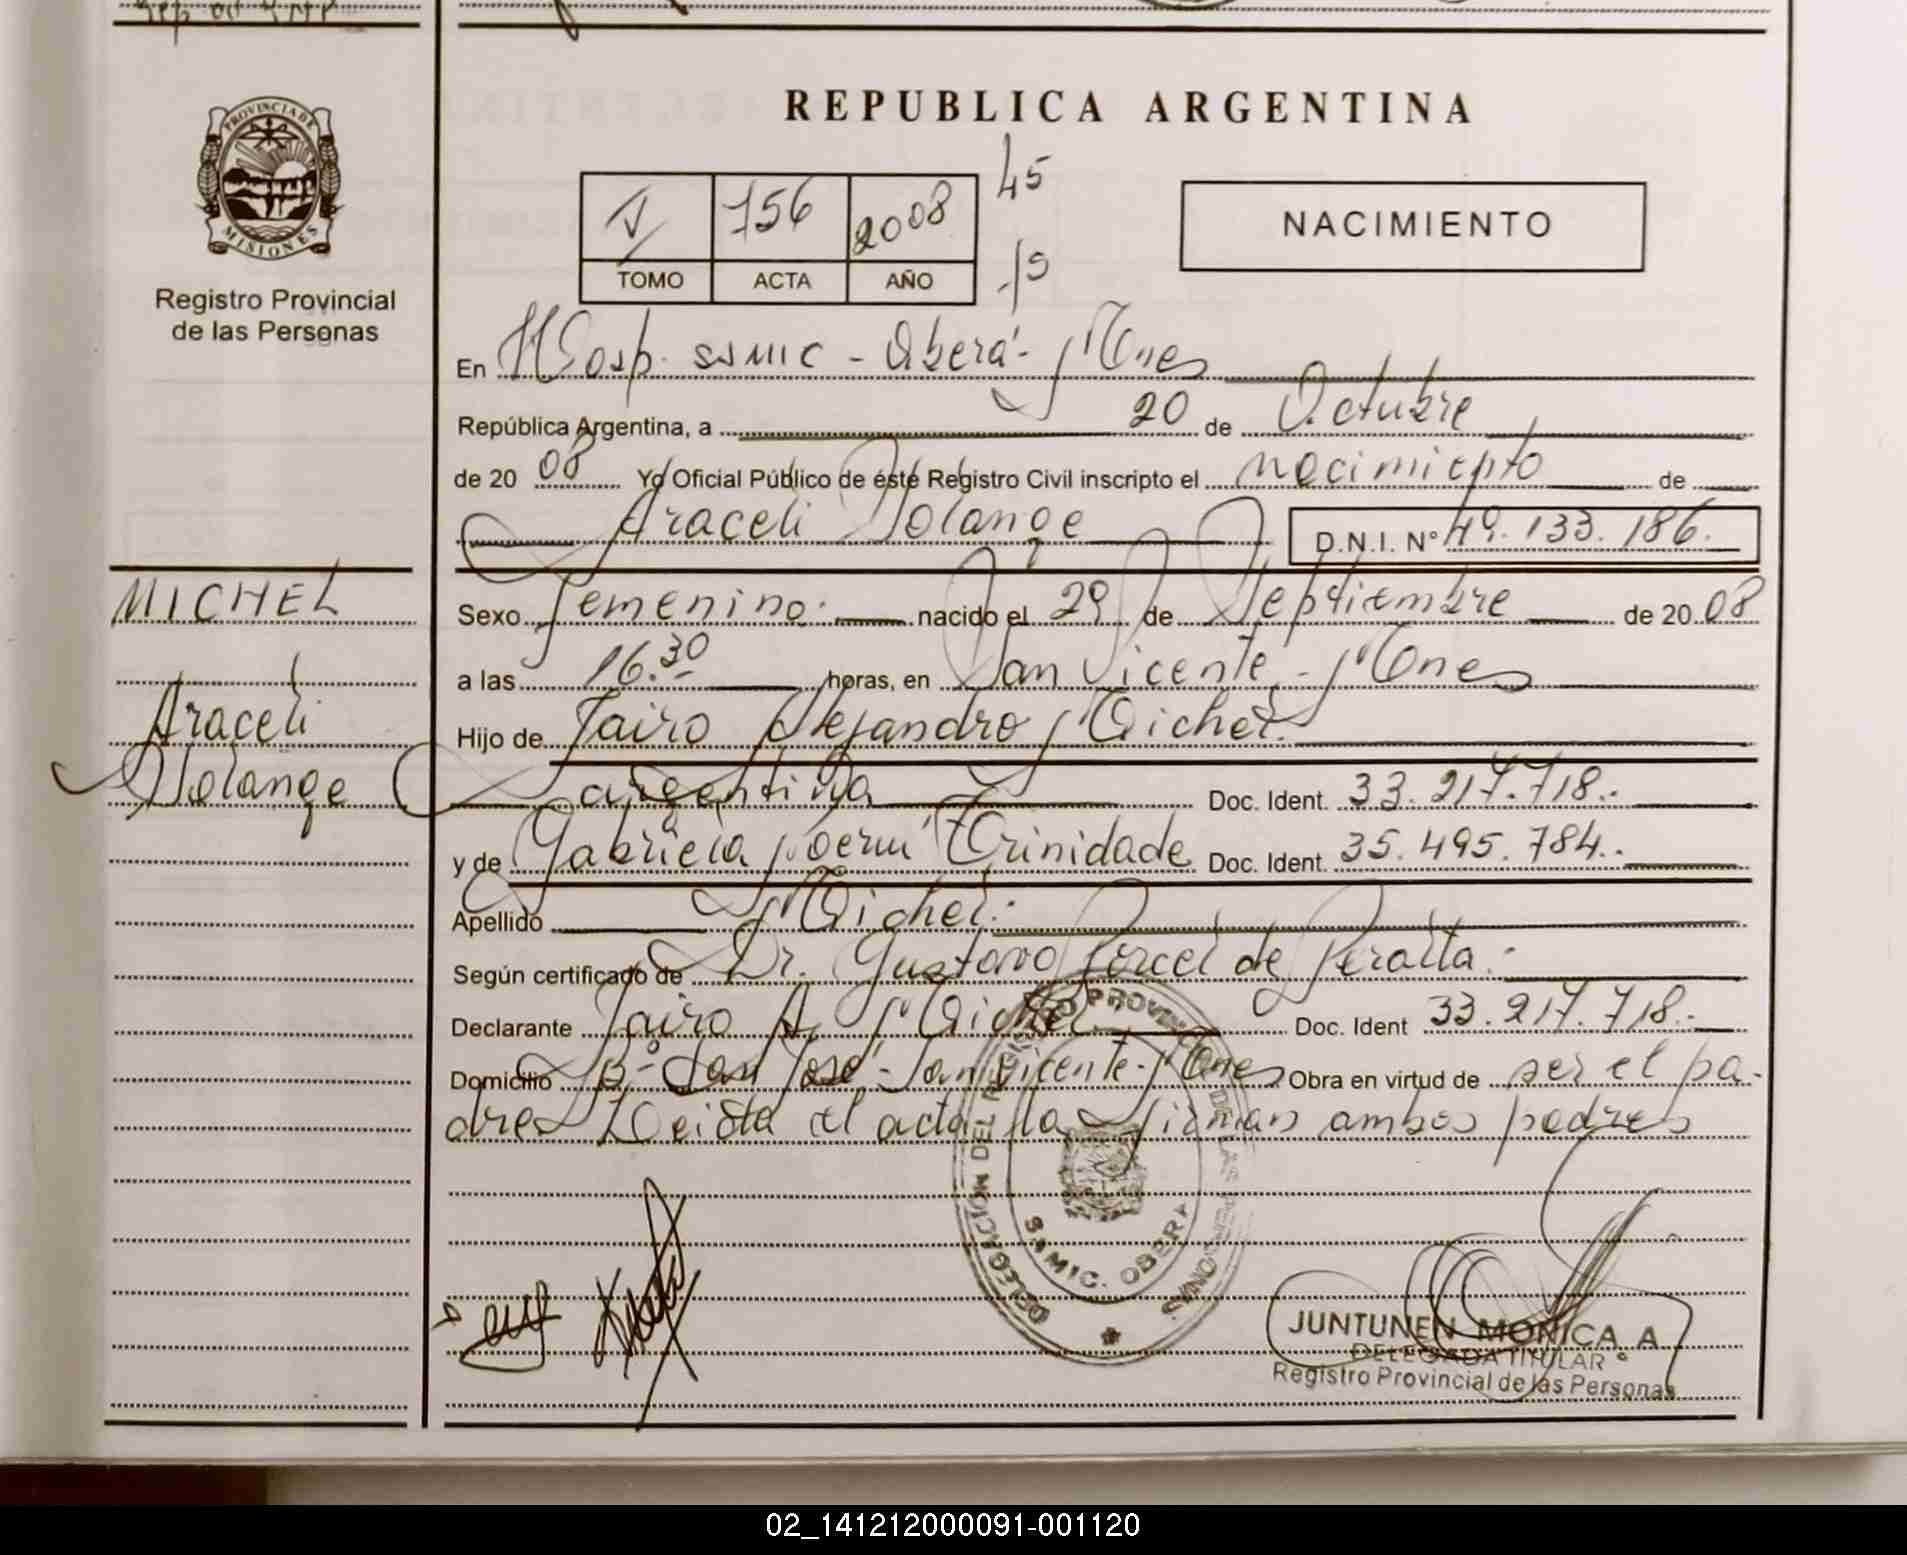 REPUBLICA ARGENTINA
PROVINCIA DE
MISIONES
Registro Provincial
de las Personas
V 756 2008
TOMO ACTA AÑO
45
15
NACIMIENTO
En Hosp. SAMIC - Oberá - Mnes
República Argentina, a 20 de Octubre
de 20 08 Yo Oficial Público de éste Registro Civil inscripto el nacimiento de
Araceli Solange D.N.I. Nº 49.133.186.
MICHEL
Araceli
Solange
Sexo Femenino. nacido el 29 de Septiembre de 20 08
a las 16.30 horas, en San Vicente - Mnes
Hijo de Jairo Alejandro Michel.
argentina Doc. Ident. 33.217.718.-
y de Gabriela Noemí Trinidade Doc. Ident. 35.495.784.-
Apellido Michel.-
Según certificado de Dr. Gustavo Porcel de Peralta.-
Declarante Jairo A. Michel Doc. Ident 33.217.718.-
Domicilio Bº- San José - San Vicente - Mnes Obra en virtud de ser el pa-
dre. Leida el acta la firman ambos padres
DELEGACION DEL REGISTRO PROVINCIAL DE LAS PERSONAS
SAMIC. OBERA
JUNTUNEN MONICA A
DELEGADA TITULAR
Registro Provincial de las Personas
02_141212000091-001120